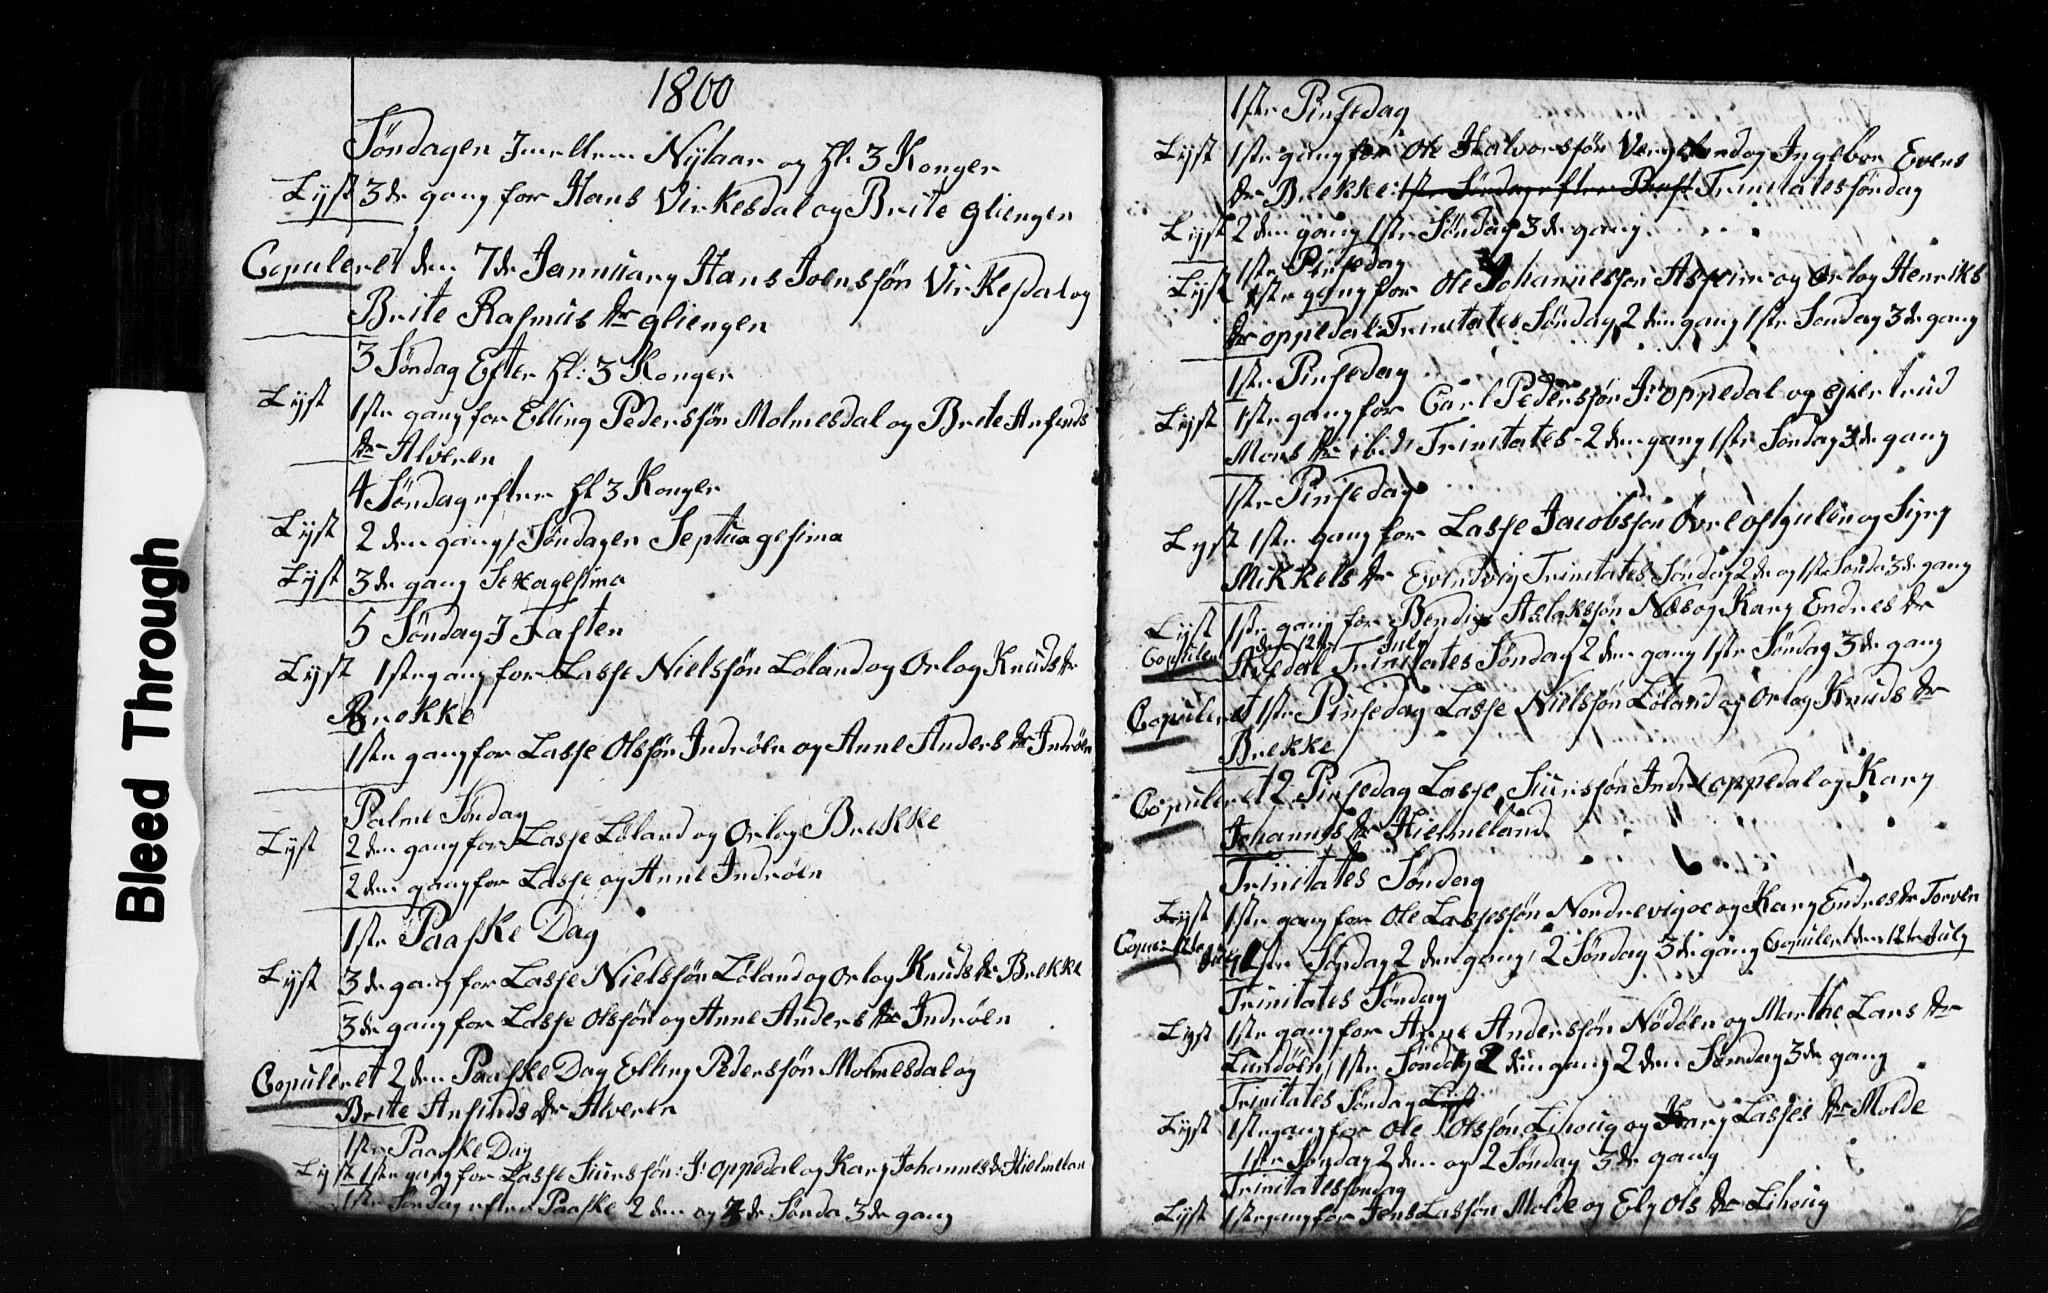 Bleed Through
1800
Søndagen Imellem Nÿtaar og hl: 3 Konger
Lyst 3de gang for Hans Virkesdal og Brite Gliengen
Copuleret den 7de Januuary Hans Joensøn Virkesdal og
Brite Rasmus dr Gliengen
3 Søndag Efter hl: 3 Konger
Lyst 1ste gang for Elling Pedersøn Molmesdal og Brite Anfinds
dr Alveren
4 Søndag efter hl 3 Konger
Lyst 2den gang, Søndagen Septuagesima
Lyst 3de gang Sexagesima
5 Søndag I Fasten
Lyst 1ste gang for Lasse Nielssøn Løland og Orlog Knuds dr
Brekke
1ste gang for Lasse Olssøn Indrøen og Anne Anders dr Indrøen
Palme Søndag
Lyst 2den gang for Lasse Løland og Orlog Brekke
2den gang for Lasse og Anne Indrøen
1ste Paaske Dag
Lyst 3de gang for Lasse Nielssøn Løland og Orlog Knuds dr Brekke
3de gang for Lasse Olssøn og Anne Anders dr Indrøen
Copuleret 2den Paaske Dag Elling Pederssøn Molmesdal og
Brite Anfinds dr Alveren
1ste Paaske Dag
Lyst 1ste gang for Lasse Siurssøn: I: oppedal og Kary Johannes dr Hielmelan
1ste Søndag efter Paaske 2den og 2de Sønda 3de gang
1ste Pinsedag
Lyst 1ste gang for Ole Halvorssøn og Ingebor Evens
dr Brekke: 1ste Søndag efter Trinitatessøndag
Lyst 2den gang 1ste Søndag 3de gang
1ste Pinsedag
Lyst 1ste gang for Ole Johannessøn Asheim og Orlog Henriks
dr oppedal: Trinitates Søndag 2den gang 1ste Søndag 3de gang
1ste Pinsedag
Lyst 1ste gang for Carl Pederssøn I: oppedal og Giertrud
Mons dr ibid: Trinitates 2den gang 1ste Søndag 3de gang
1ste Pinsedag
Lyst 1ste gang for Lasse Jacobssøn og Siyry
Mikkels dr Evindvig Trinitates Søndag 2de og 1ste Sønda 3de gang
Lyst 1ste gang for Bendix Aslakssøn Næs og Kary Endres dr
Copuleret den 12te July
Trinitates Søndag 2den gang 1ste Søndag 3de gang
Copuleret 1ste Pinsedag Lasse Nielssøn Løland og Orlog Knuds dr
Brekke
Copuleret 2 Pinsedag Lasse Siurssøn Indre oppedal og Kary
Johannes dr Hielmeland
Trinitates Søndag
Lyst 1ste gang for Ole Lassessøn Nordrevigoe og Kary Endres dr Torvln
1ste Søndag 2den gang, 2 Søndag 3de gang Copuleret den 12te July
Trinitates Søndag
Lyst 1ste gang for Arne Anderssøn Nødøen og Marthe Lars dr
Lundøen, 1ste Søndag 2den gang 2den Søndag 3de gang
Trinitates Søndag Lyst
Lyst 1ste gang for Ole Olssøn Lihoug og Kary Lasses dr Molde
1ste Søndag 2den og 2 Søndag 3de gang
Trinitatessøndag
Lyst 1ste gang for Jens Lassøn Molde og Ely Ols dr Lihoug